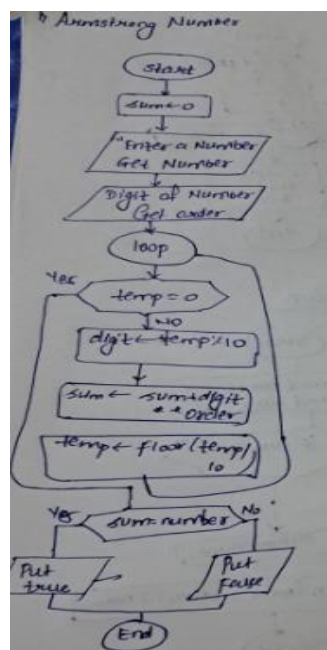 Armstrong Number
Start
sum←0
"Enter a Number
Get Number
Digit of Number
Get order
loop
Yes
temp = 0
NO
digit ← temp%10
sum ← sum+digit
**order
temp ← floor(temp/
10
Yes
sum=number
No
Put
true
Put
False
End